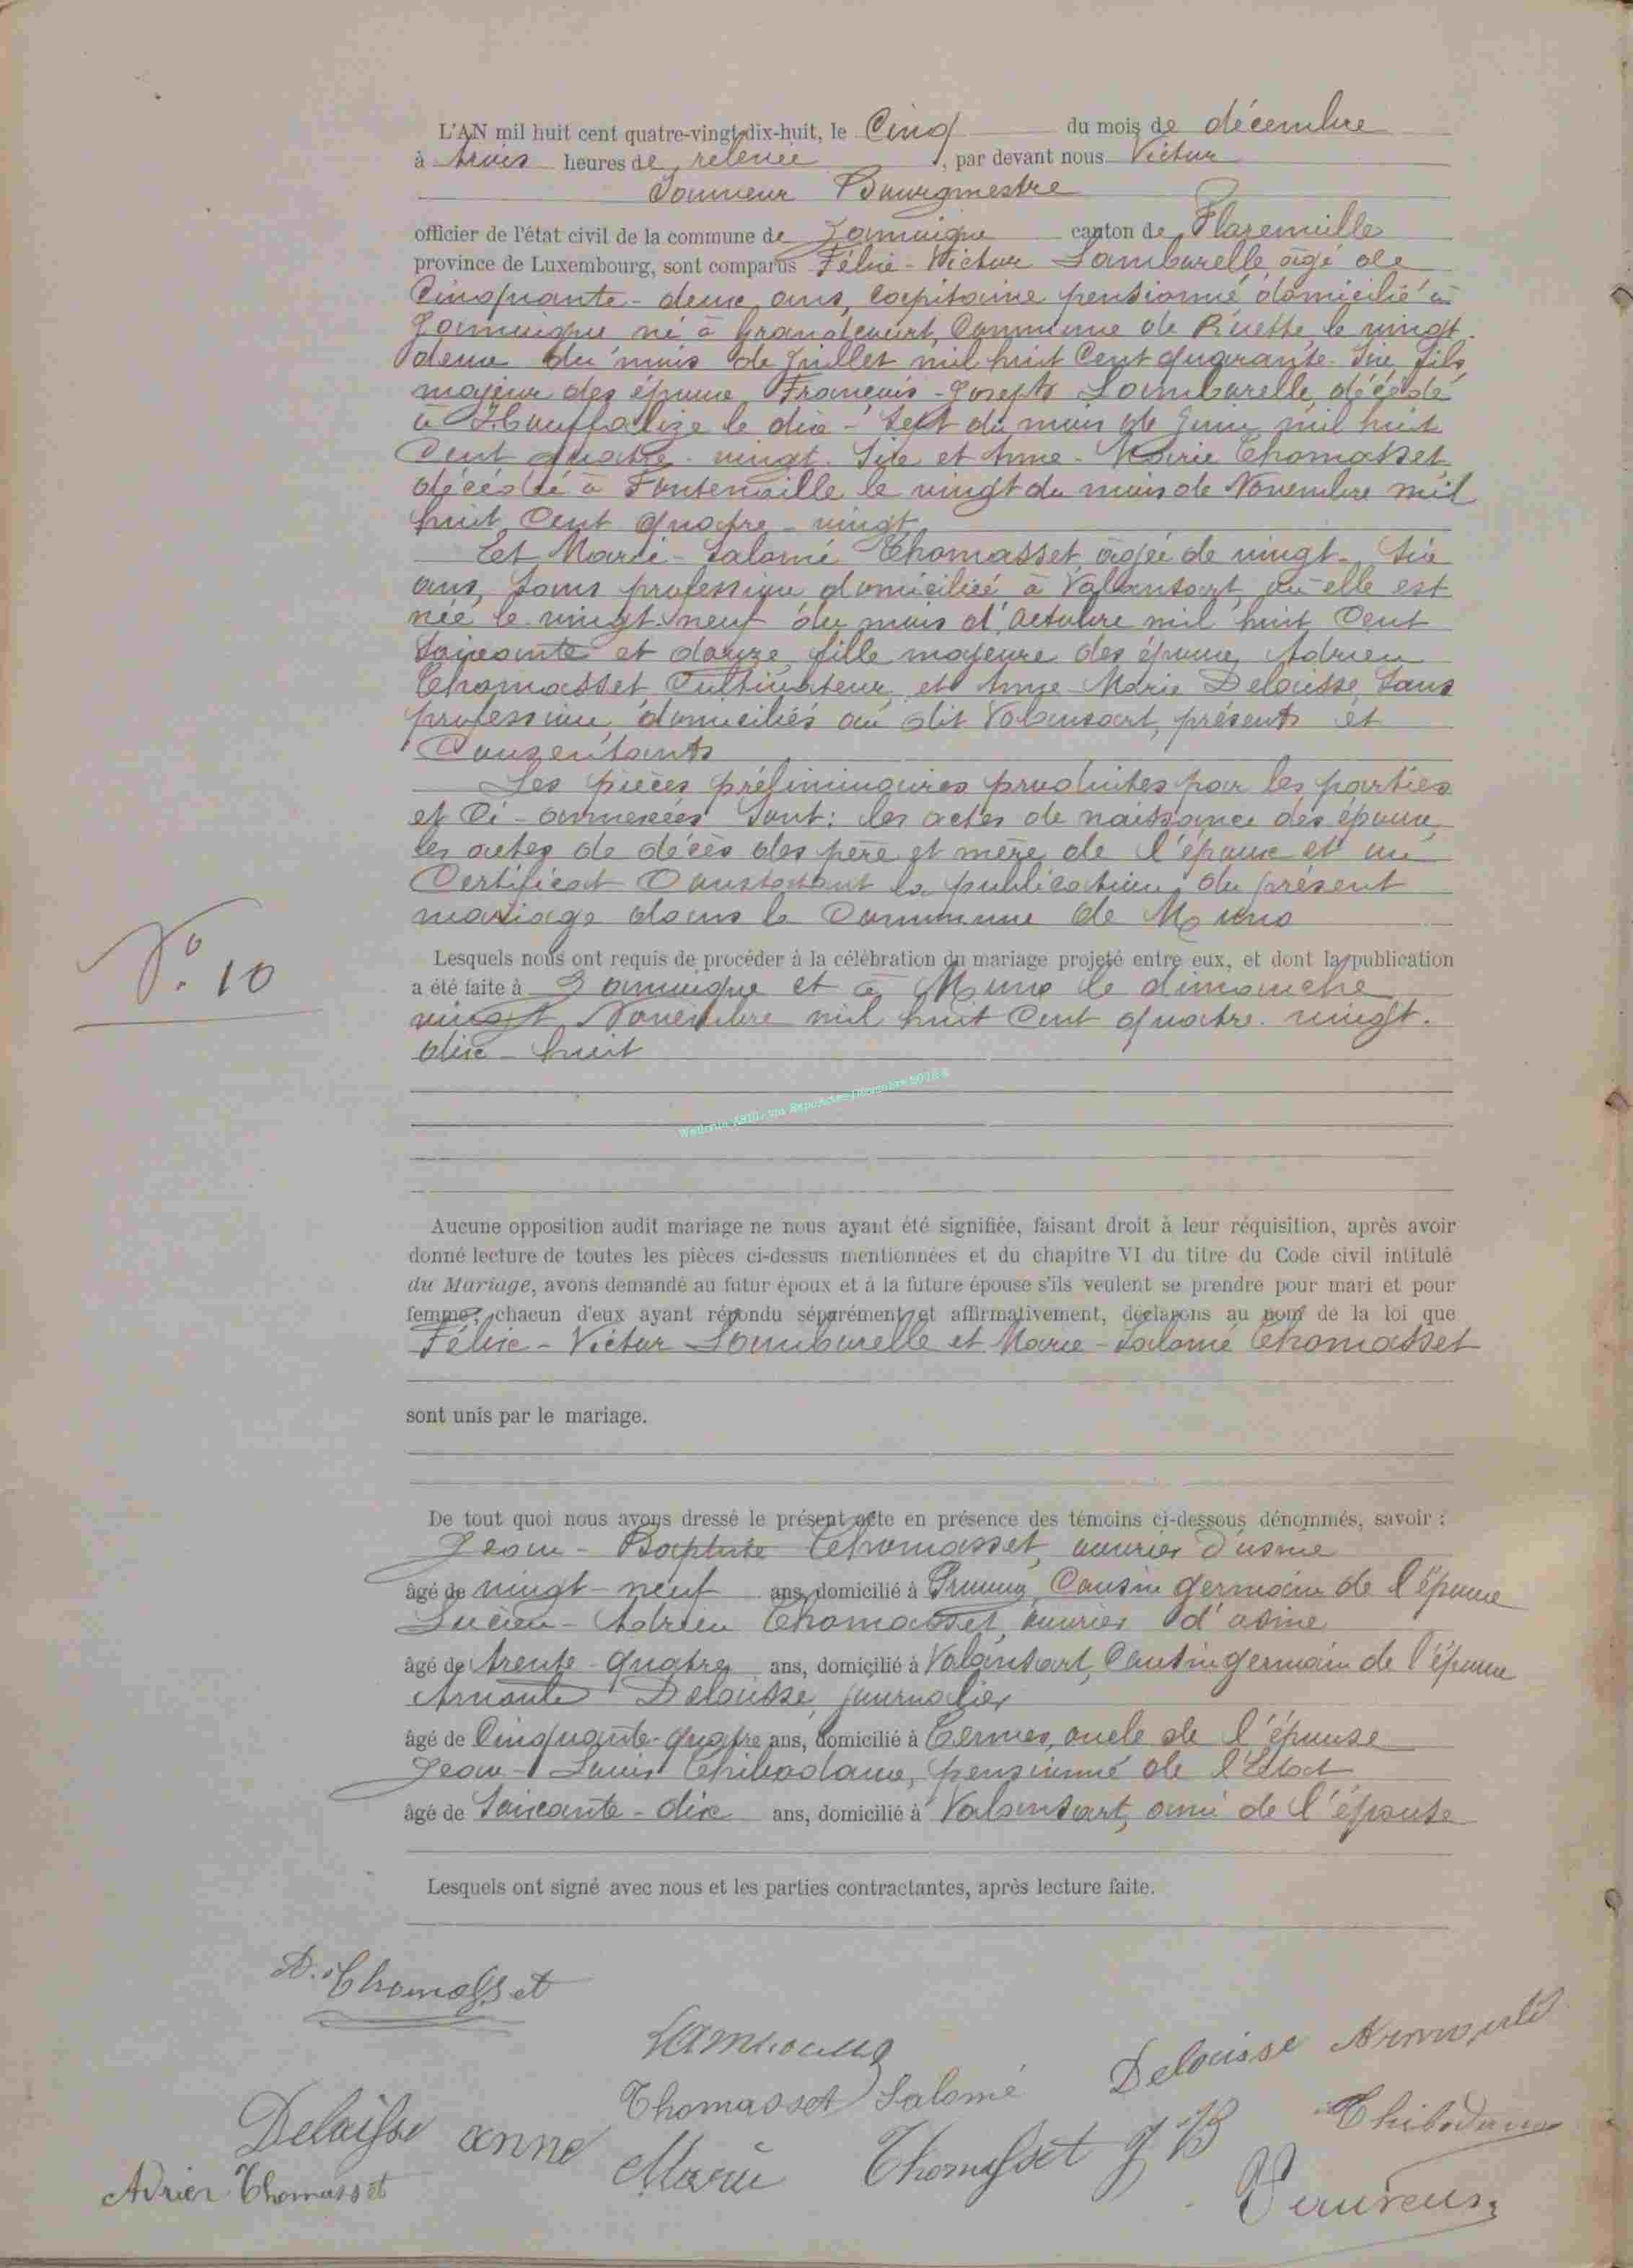 L'AN mil huit cent quatre-vingt-dix-huit, le Cinq du mois de décembre
à trois heures de relevée, par devant nous Victor
Bourgmestre
officier de l'état civil de la commune de Jamoigne canton de Florenville
province de Luxembourg, sont comparus Félix-Victor Lamborelle, âgé de
Cinquante-deux ans, Capitaine pensionné domicilié à
Jamoigne né à Grandcourt, Commune de Ruette, le vingt-
deux du mois de Juillet mil huit Cent quarante-six, fils
majeur des époux François-Joseph Lamborelle, décédé
à Houffalize le dix-sept du mois de Juin mil huit
Cent quatre-vingt-six et Anne-Marie Thomasset,
décédée à Fontenoille le vingt du mois de Novembre mil
huit Cent quatre-vingt.
Et Marie-Salomé Thomasset, âgée de vingt-six
ans, sans profession, domiciliée à Valansart, où elle est
née le vingt-neuf du mois d'octobre mil huit Cent
soixante et douze, fille majeure des époux Adrien
Thomasset, Cultivateur, et Anne-Marie Delaisse, sans
profession, domiciliés au dit Valansart, présents et
Consentants
Les pièces préliminaires produites par les parties
et Ci-annexées sont: les actes de naissance des époux,
les actes de décès des père et mère de l'époux et un
Certificat Constatant la publication du présent
mariage dans la Commune de Muno
N° 10
Lesquels nous ont requis de procéder à la célébration du mariage projeté entre eux, et dont la publication
a été faite à Jamoigne et à Muno le dimanche
vingt Novembre mil huit Cent quatre-vingt-
dix-huit
Aucune opposition audit mariage ne nous ayant été signifiée, faisant droit à leur réquisition, après avoir
donné lecture de toutes les pièces ci-dessus mentionnées et du chapitre VI du titre du Code civil intitulé
du Mariage, avons demandé au futur époux et à la future épouse s'ils veulent se prendre pour mari et pour
femme; chacun d'eux ayant répondu séparément et affirmativement, déclarons au nom de la loi que
Félix-Victor Lamborelle et Marie-Salomé Thomasset
sont unis par le mariage.
De tout quoi nous avons dressé le présent acte en présence des témoins ci-dessous dénommés, savoir :
Jean-Baptiste Thomasset, ouvrier d'usine
âgé de vingt-neuf ans, domicilié à Cousin germain de l'épouse
Lucien-Adrien Thomasset, ouvrier d'usine
âgé de trente-quatre ans, domicilié à Valansart, Cousin germain de l'épouse
Arnould Delaisse, journalier
âgé de Cinquante-quatre ans, domicilié à Termes, oncle de l'épouse
Jean-Louis pensionné de l'Etat
âgé de soixante-dix ans, domicilié à Valansart, ami de l'épouse
Lesquels ont signé avec nous et les parties contractantes, après lecture faite.
A. Thomasset
Delaisse Arnould
Thomasset Salomé
Delaisse anne Marie Thomasset J B
Adrien Thomasset